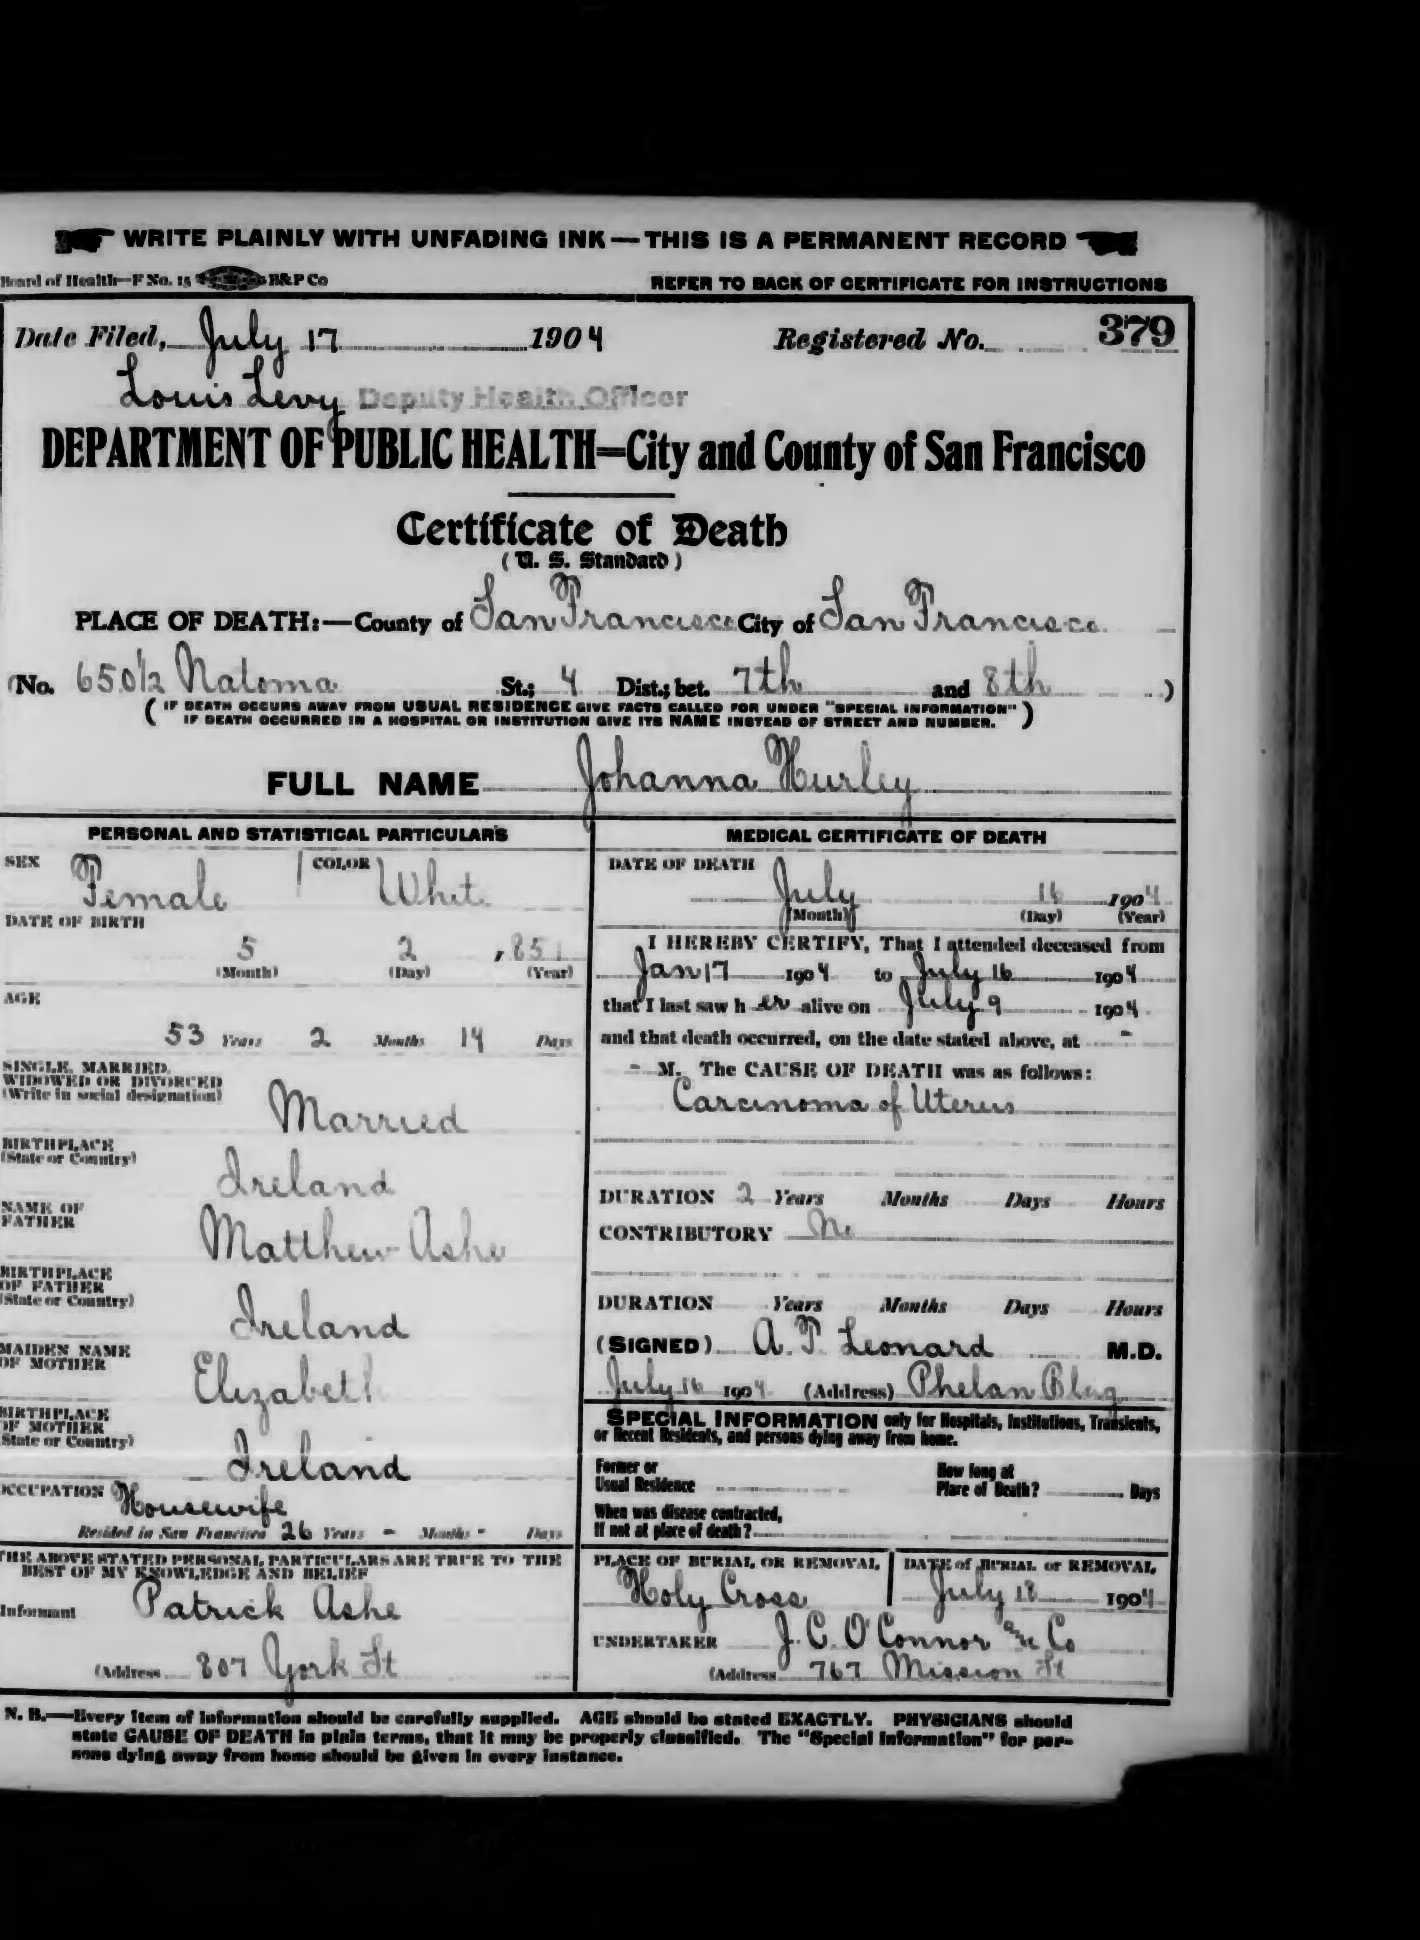 WRITE PLAINLY WITH UNFADING INK—THIS IS A PERMANENT RECORD
Board of Health—F No. 15 H&P Co
REFER TO BACK OF CERTIFICATE FOR INSTRUCTIONS
Date Filed, July 17 1904 Registered No. 379
Louis Levy Deputy Health Officer
DEPARTMENT OF PUBLIC HEALTH=City and County of San Francisco
Certificate of Death
(U. S. Standard)
PLACE OF DEATH:—County of San Francisco City of San Francisco
(No. 650½ Natoma St.; 4 Dist.; bet. 7th and 8th )
( IF DEATH OCCURS AWAY FROM USUAL RESIDENCE GIVE FACTS CALLED FOR UNDER "SPECIAL INFORMATION"
IF DEATH OCCURRED IN A HOSPITAL OR INSTITUTION GIVE ITS NAME INSTEAD OF STREET AND NUMBER. )
FULL NAME Johanna Hurley
PERSONAL AND STATISTICAL PARTICULARS
SEX Female COLOR White
DATE OF BIRTH
5 2 , 851
(Month) (Day) (Year)
AGE
53 Years 2 Months 14 Days
SINGLE, MARRIED,
WIDOWED OR DIVORCED
(Write in social designation)
Married
BIRTHPLACE
(State or Country)
Ireland
NAME OF
FATHER
Matthew Ashe
BIRTHPLACE
OF FATHER
(State or Country)
Ireland
MAIDEN NAME
OF MOTHER
Elizabeth
BIRTHPLACE
OF MOTHER
State or Country)
Ireland
OCCUPATION Housewife
Resided in San Francisco 26 Years - Months - Days
THE ABOVE STATED PERSONAL PARTICULARS ARE TRUE TO THE
BEST OF MY KNOWLEDGE AND BELIEF
Informant Patrick Ashe
(Address 807 York St
MEDICAL CERTIFICATE OF DEATH
DATE OF DEATH
July 16 1904
(Month) (Day) (Year)
I HEREBY CERTIFY, That I attended deceased from
Jan 17 1904 to July 16 1904
that I last saw h er alive on July 9 1904
and that death occurred, on the date stated above, at -
- M. The CAUSE OF DEATH was as follows:
Carcinoma of Uterus
DURATION 2 Years Months Days Hours
CONTRIBUTORY No
DURATION Years Months Days Hours
(SIGNED) A. P. Leonard M.D.
July 16 1904 (Address) Phelan Bldg
SPECIAL INFORMATION only for Hospitals, Institutions, Transients,
or Recent Residents, and persons dying away from home.
Former or
Usual Residence
How long at
Place of Death? Days
When was disease contracted,
If not at place of death?
PLACE OF BURIAL OR REMOVAL
Holy Cross
DATE of BURIAL or REMOVAL
July 18 1904
UNDERTAKER J. C. O'Connor and Co
(Address 767 Mission St
N. B.—Every item of information should be carefully supplied. AGE should be stated EXACTLY. PHYSICIANS should
state CAUSE OF DEATH in plain terms, that it may be properly classified. The "Special Information" for per-
sons dying away from home should be given in every instance.